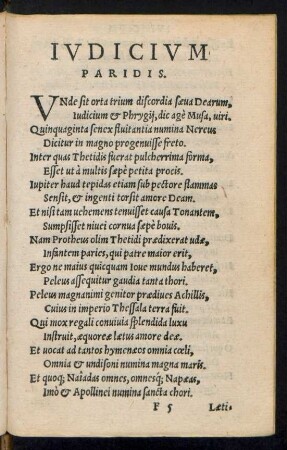 IVDICIVM
PARIDIS.
VNde sit orta trium discordia sæua Dearum,
Iudicium & Phrygij, dic agè Musa, viri.
Quinquaginta senex fluitantia numina Nereus
Dicitur in magno progenuisse freto.
Inter quas Thetidis fuerat pulcherrima forma,
Esset ut à multis sæpè petita procis.
Iupiter haud tepidas etiam sub pectore flammas
Sensit, & ingenti torsit amore Deam.
Et nisi tam uehemens tenuisset causa Tonantem,
Sumpsisset niuei cornua sæpè bouis.
Nam Protheus olim Thetidi prædixerat udæ,
Infantem paries, qui patre maior erit,
Ergo ne maius quicquam Ioue mundus haberet,
Peleus assequitur gaudia tanta thori.
Peleus magnanimi genitor prædiues Achillis,
Cuius in imperio Thessala terra fuit.
Qui mox regali conuiuia splendida luxu
Instruit, æquoreæ lætus amore deæ.
Et uocat ad tantos hymenæos omnia cœli,
Omnia & undisoni numina magna maris.
Et quoq; Naiadas omnes, omnesq́; Napæas,
Imò & Apollinei numina sancta chori.
F 5 Læti-